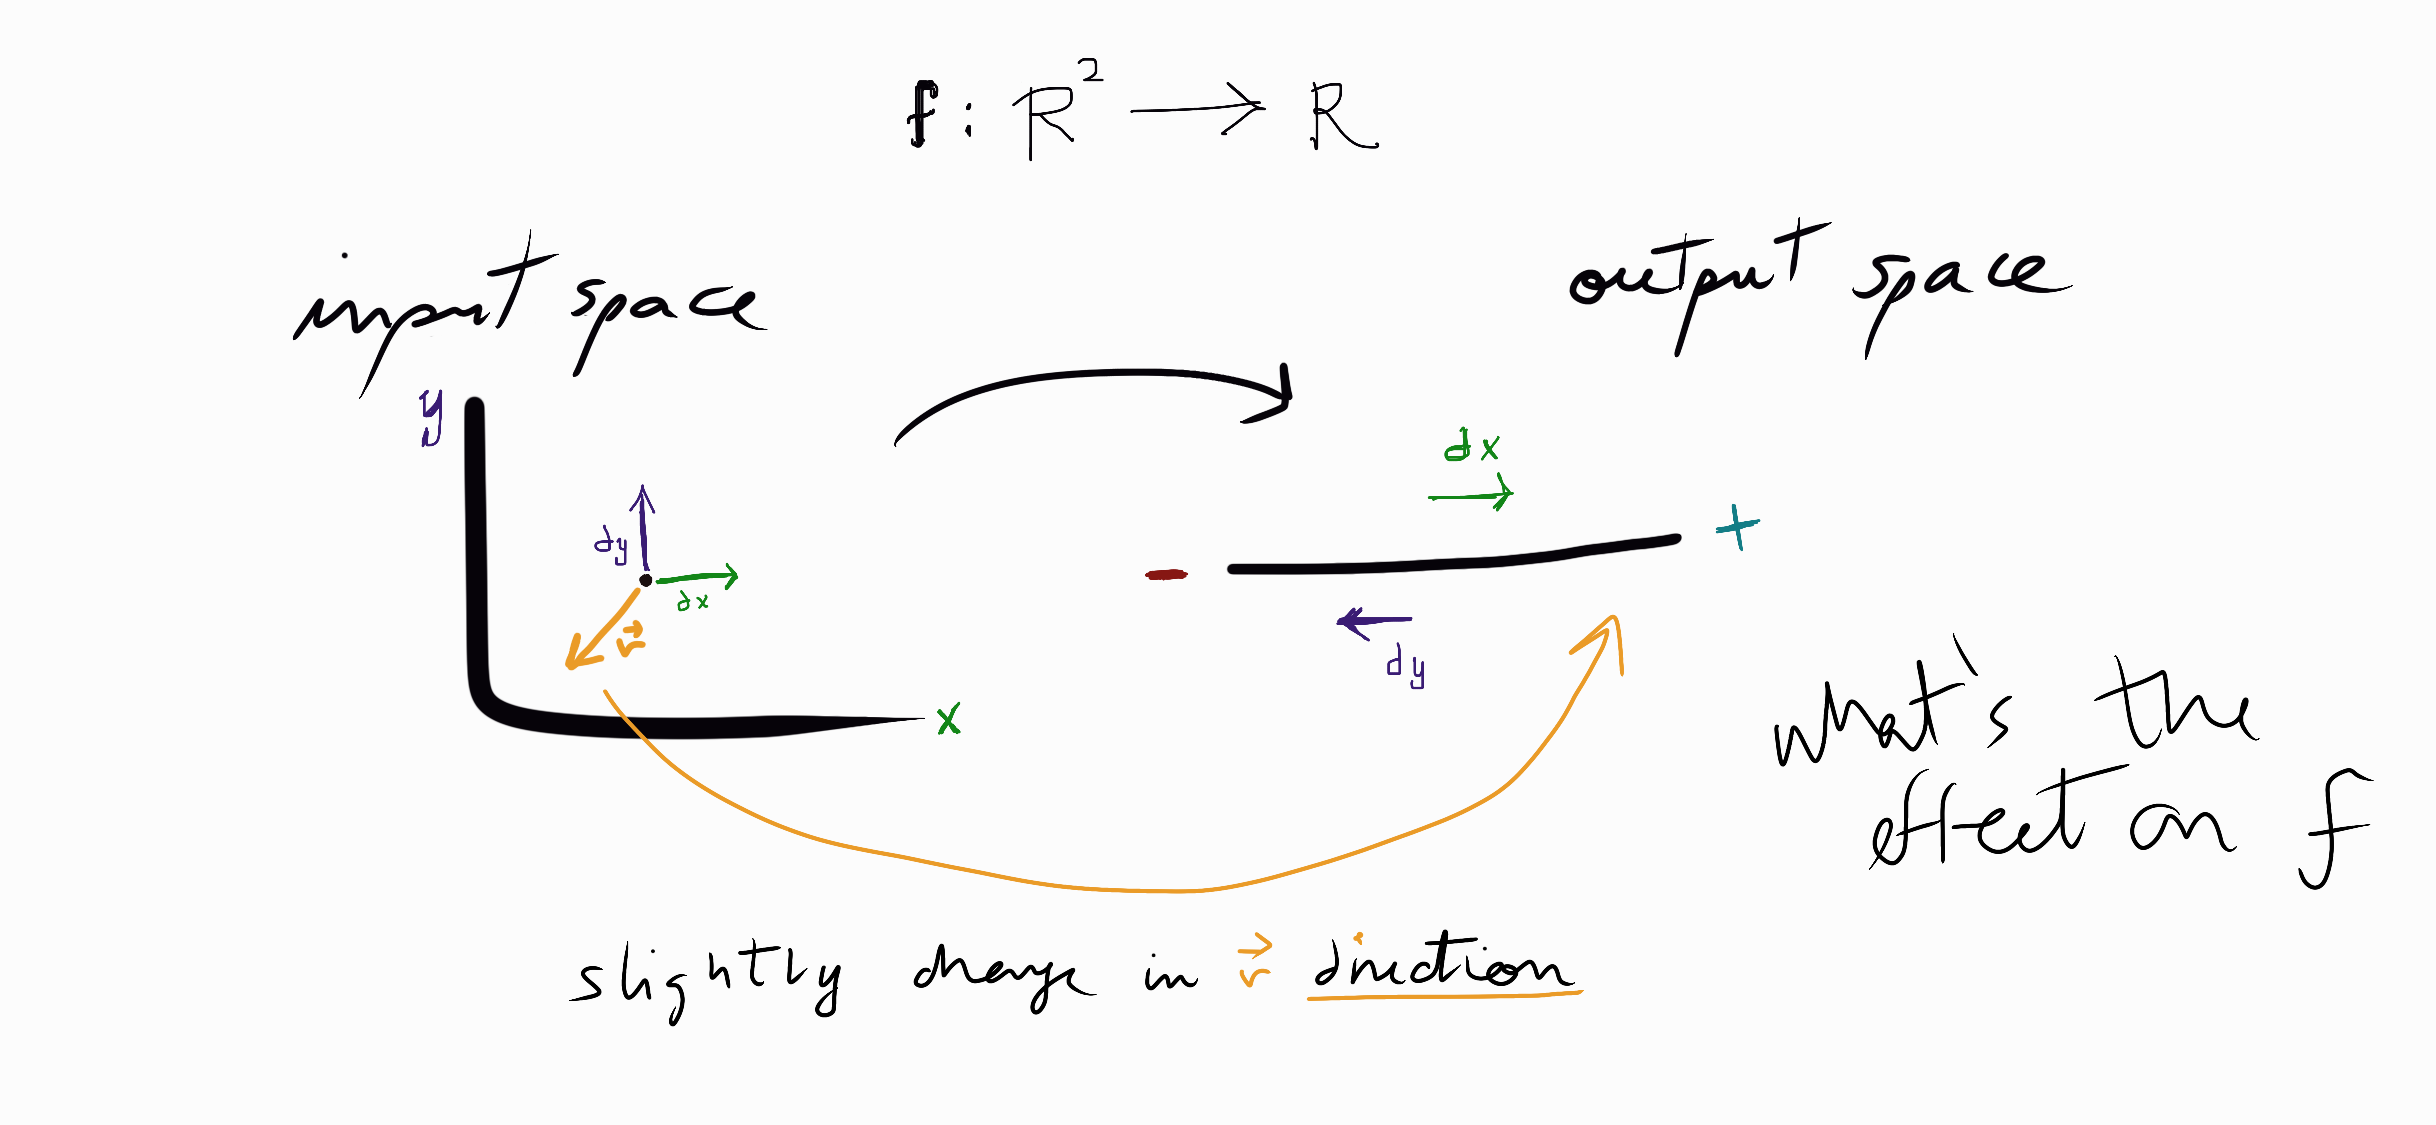 f: R² → R
input space
output space
y
dx
dy
+
dx
−
v⃗
dy
x
what's the
effect on f
slightly change in v⃗ direction